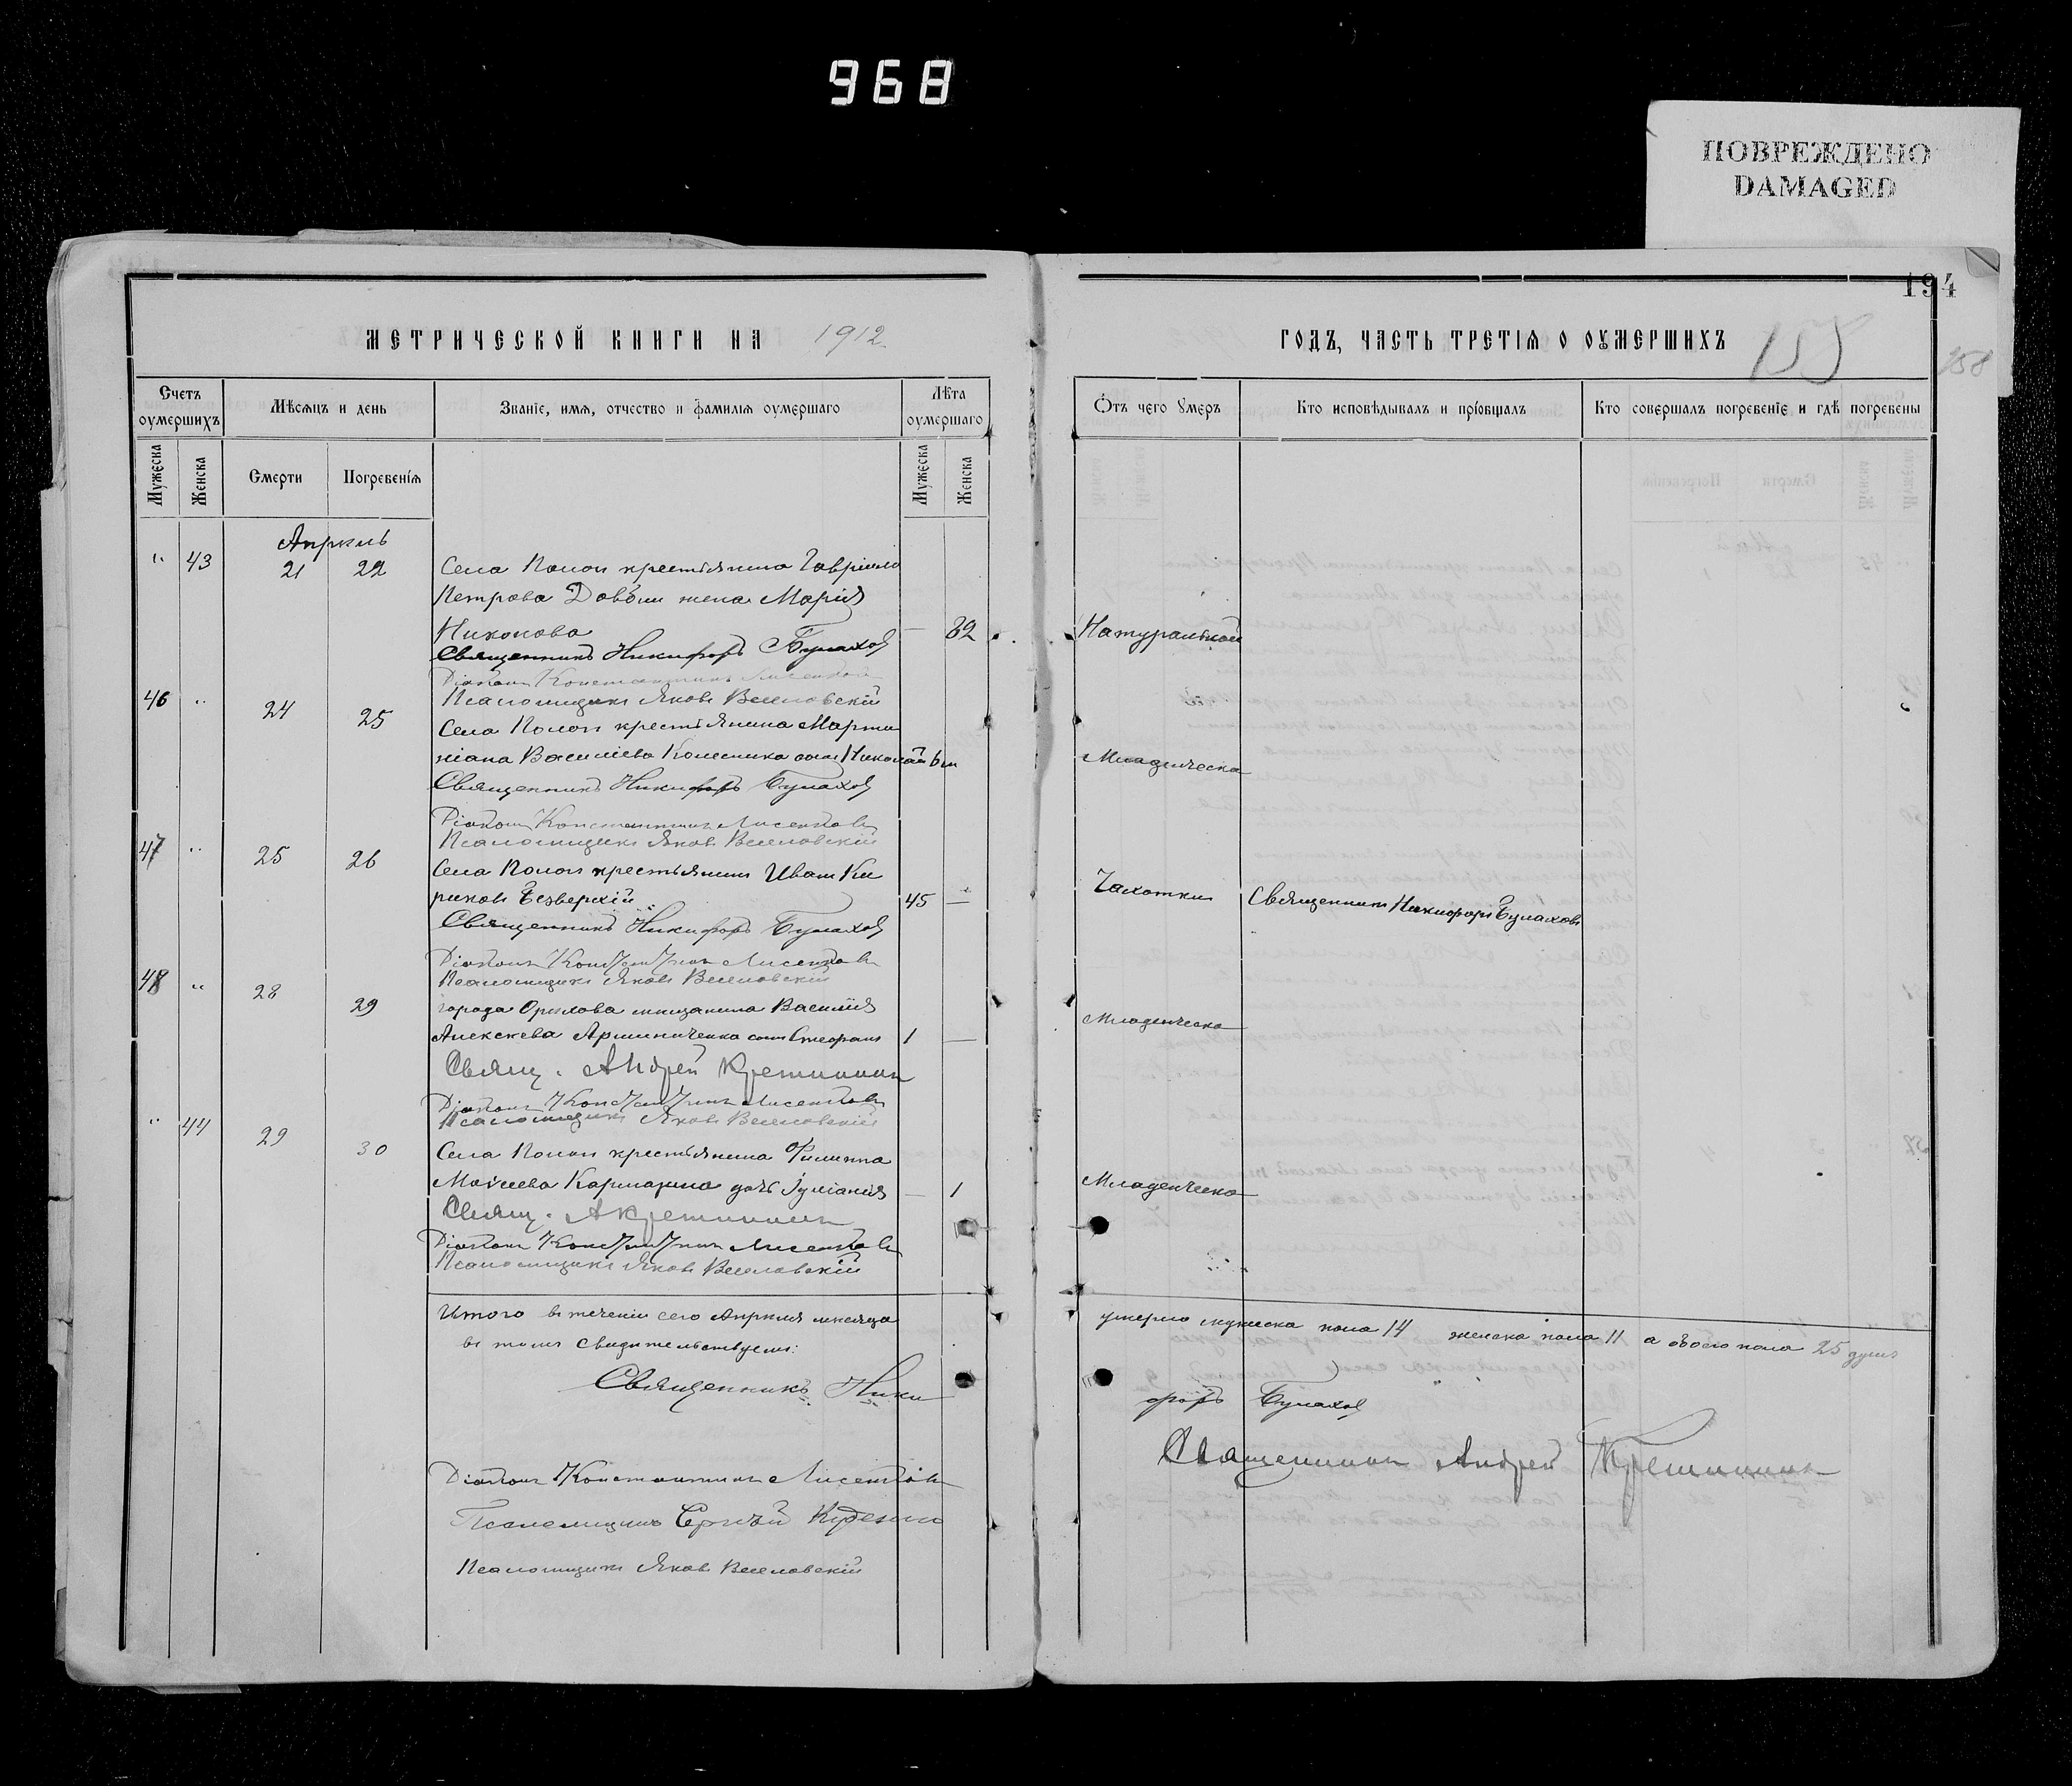 968
ПОВРЕЖДЕНО
DAMAGED
194
МЕТРИЧЕСКОЙ КНИГИ НА 1912
ГОДЪ, ЧАСТЬ ТРЕТІѦ О ОУМЕРШИХЪ
158
Счетъ оумершихъ
Мѣсѧцъ и день
Званіе, имѧ, отчество и фамиліѧ оумершаго
Лѣта оумершаго
Отъ чего умеръ
Кто исповѣдывалъ и пріобщалъ
Кто совершалъ погребеніе и гдѣ погребены
Мужеска
Женска
Смерти
Погребеніѧ
Мужеска
Женска
Апрель
" 43 21 22 Села Полон крестьянина Гавріила
Петрова жена Марія
Никонова — 82 Натуральной
Священникъ Никифоръ Булахов
Діаконъ Константинъ Лисенков
Псаломщикъ Яковъ Веселовскій
46 " 24 25 Села Полон крестьянина Марти
ніана Василіева Колесника сынъ Николай 6 м Младенческа
Священникъ Никифоръ Булахов
Діаконъ Константинъ Лисенков
Псаломщикъ Яковъ Веселовскій
47 " 25 26 Села Полон крестьянинъ Иванъ Ки
риковъ Безверхій 45 — Чахотки Священникъ Никифоръ Булаховъ
Священникъ Никифоръ Булахов
Діаконъ Константинъ Лисенков
Псаломщикъ Яковъ Веселовскій
48 " 28 29 города Орѣхова мѣщанина Василія
Алексѣева сынъ Стефанъ 1 — Младенческа
Свящ. Андрей Кретининъ
Діаконъ Константинъ Лисенков
Псаломщикъ Яковъ Веселовскій
" 44 29 30 Села Полон крестьянина Филиппа
Моисеева Кармазина дочь Іуліанія — 1 Младенческа
Свящ. А Кретининъ
Діаконъ Константинъ Лисенков
Псаломщикъ Яковъ Веселовскій
Итого въ теченіи сего Апрѣля мѣсяца умерло мужеска пола 14 женска пола 11 а обоего пола 25 душъ
въ томъ свидѣтельствуемъ:
Священникъ Никифоръ Булахов
Священникъ Андрей Кретининъ
Діаконъ Константинъ Лисенков
Псаломщикъ Сергѣй
Псаломщикъ Яковъ Веселовскій